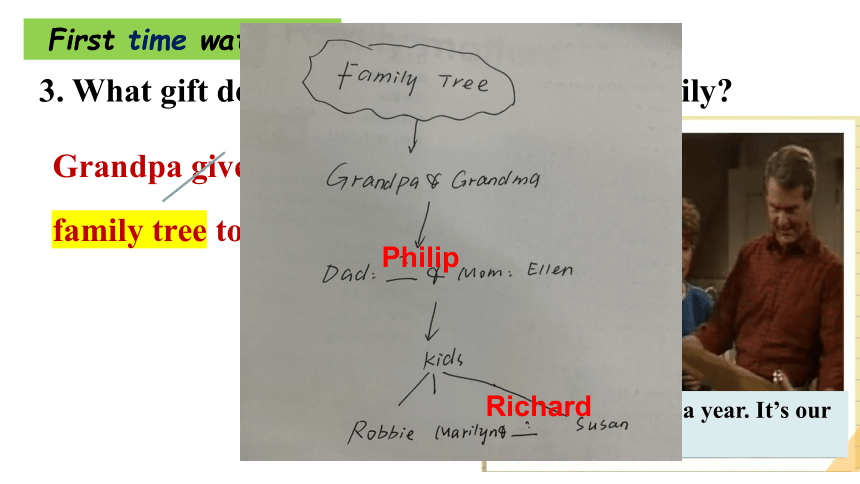 First time wa
3. What gift d
ily?
Grandpa give
family tree to
Family Tree
Grandpa & Grandma
Philip
Dad: __ & Mom: Ellen
kids
Richard
Robbie Marilyn & __ Susan
a year. It’s our